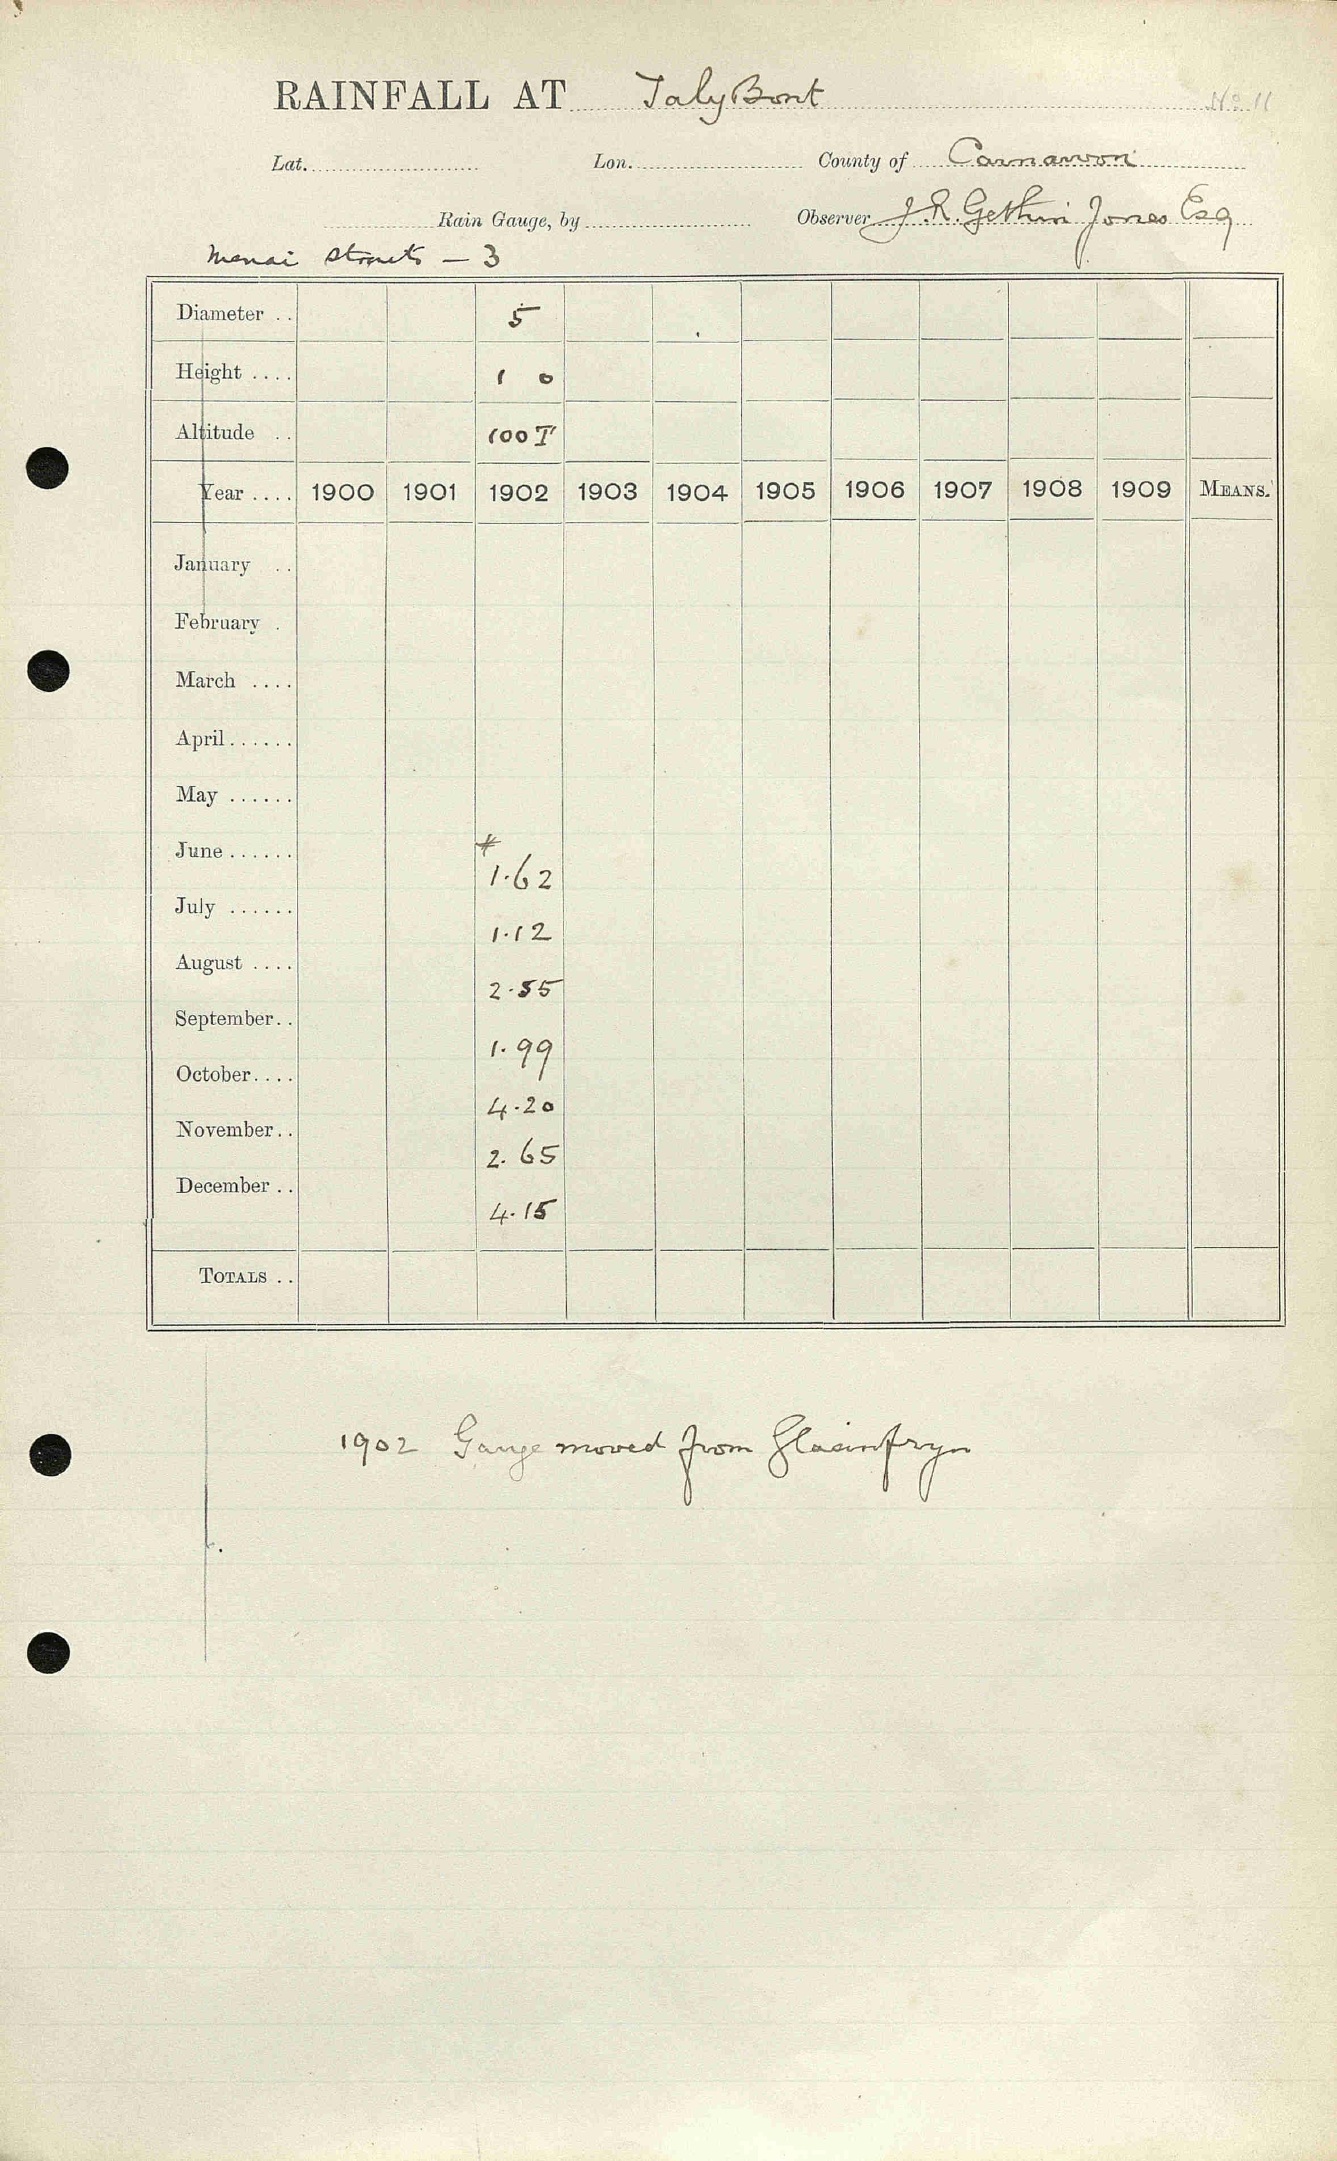 RAINFALL AT TalyBont No 11
Lat. Lon. County of Carnarvon
Rain Gauge, by Observer J.R. Gethin Jones Esq
Menai Straits - 3
Diameter .. 5
Height .... 1 0
Altitude .. 100 T
Year .... 1900 1901 1902 1903 1904 1905 1906 1907 1908 1909 MEANS.
January ..
February .
March ....
April......
May ......
June...... *
1.62
July ......
1.12
August ....
2.55
September..
1.99
October....
4.20
November..
2.65
December ..
4.15
TOTALS ..
1902 Gauge moved from Glasinfryn